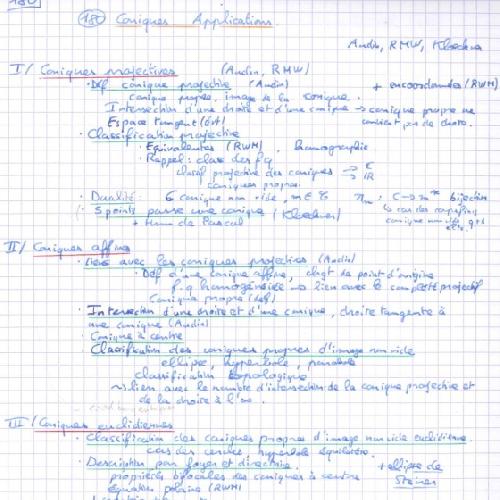 180
180 Coniques Applications
Audin, RMW, Kloeckner
I/ Coniques projectives (Audin, RMW)
• Déf conique projective (Audin) + en coordonnées (RMW)
conique propre, image de la conique.
Intersection d'une droite et d'une conique → conique propre ne contient pas de droite.
Espace tangent (évt)
• Classification projective
• Equivalentes (RMW) homographie
• Rappel: class des fq
classif projective des coniques → C
coniques propres → IR
• Dualité: C conique non vide, m ∈ C
bijection
• 5 points passe une conique (Kloeckner)
+ thm de Pascal
II/ Coniques affines
• liens avec les coniques projectives (Audin)
• Déf d'une conique affine, chgt de point d'origine
f.q homogénéisée → lien avec le complété projectif
Conique propre (déf)
• Intersection d'une droite et d'une conique, droite tangente à
une conique (Audin)
• Conique à centre
Classification des coniques propres d'image non vide
ellipse, hyperbole, parabole
classification topologique
lien avec le nombre d'intersection de la conique projective et
de la droite à l'∞.
III/ Coniques euclidiennes
• Classification des coniques propres d'image non vide euclidienne.
cas des cercles hyperbole équilatère.
• Description par foyer et directrice. + ellipse de
propriétés bifocales des coniques à centre Steiner
équation polaire (RMW)